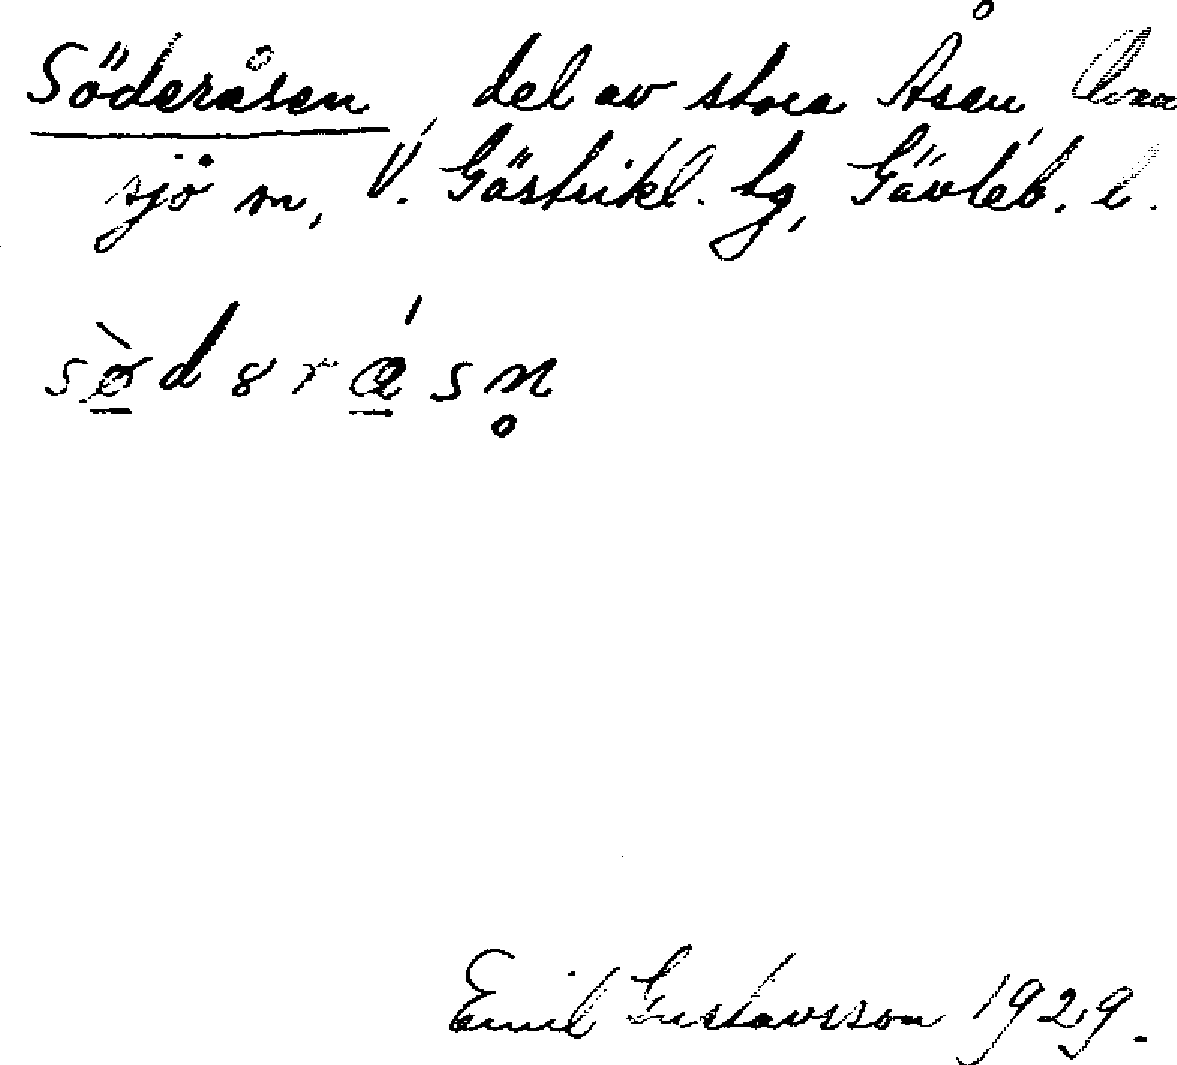 Söderåsen, del av stora Åsen Ovan
sjö sn, V. Gästrikl. tg, Gävleb. l.
sø̲̀d8rá̲sn̥
Emil Gustavsson 1929.